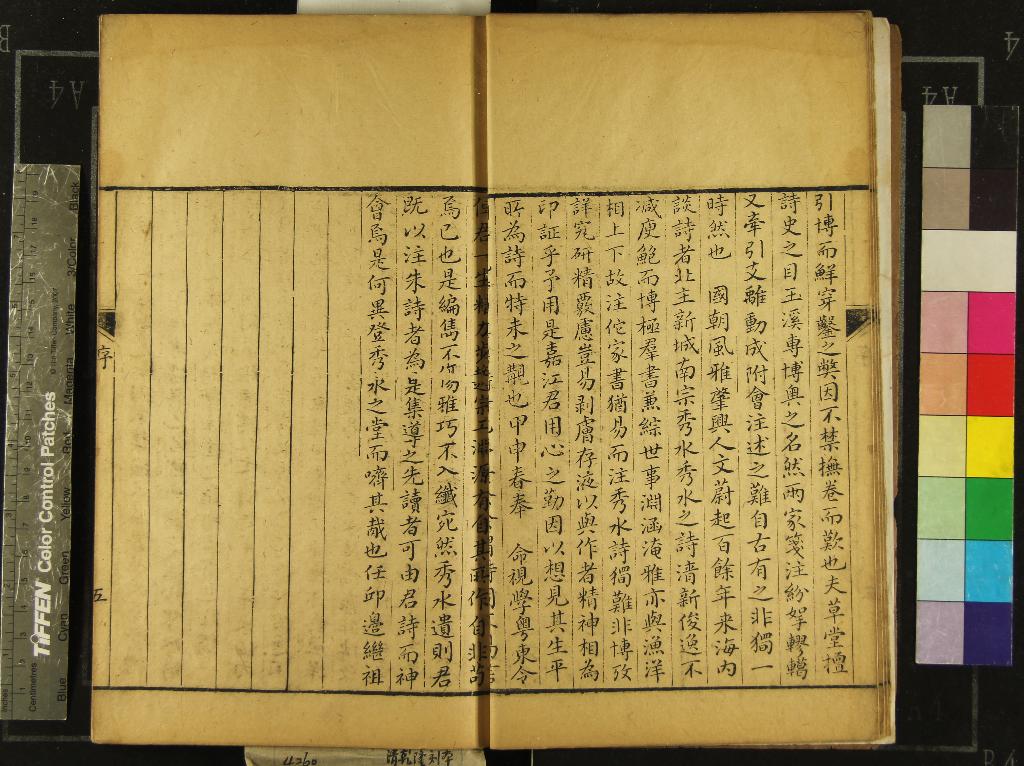 引博而鮮穿鑿之獘因不禁撫卷而歎也夫草堂擅
詩史之目玉溪專博奧之名然兩家箋注紛拏轇轕
又牽引支離動成附會注述之難自古有之非獨一
時然也 國朝風雅肇興人文蔚起百餘年來海內
談詩者北主新城南宗秀水秀水之詩清新俊逸不
減庾鮑而博極羣書兼綜世事淵涵淹雅亦與漁洋
相上下故注佗家書猶易而注秀水詩獨難非博攷
詳究研精覈慮豈易剥膚存液以與作者精神相為
印証乎予用是嘉江君用心之勤因以想見其生平
所為詩而特未之覯也甲申春奉 命視學粤東令
君一生精力
焉已也是編雋不傷雅巧不入纖宛然秀水遺則君
既以注朱詩者為是集導之先讀者可由君詩而神
會焉是何異登秀水之堂而嚌其胾也任邱邊繼祖
序
五
4260
清乾隆刻本
TIFFEN Color Control Patches
© The Tiffen Company, 2007
Inches
Centimetres
Blue
Cyan
Green
Yellow
Red
Magenta
White
3/Color
Black
A4
A4